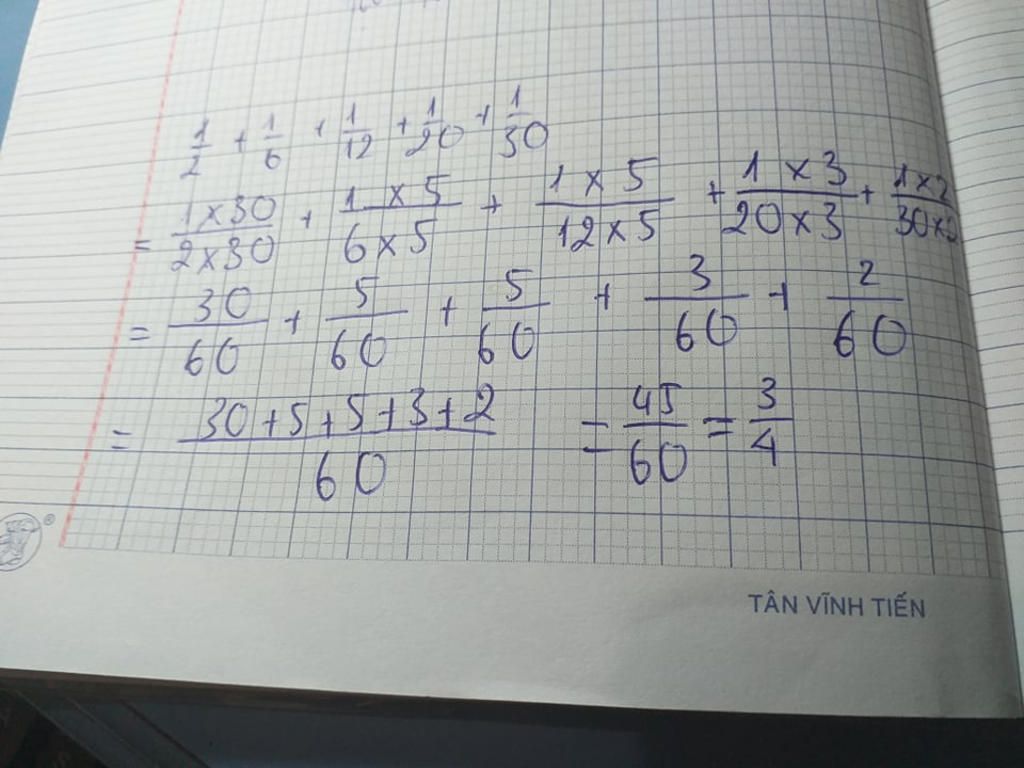 1/2 + 1/6 + 1/12 + 1/20 + 1/30
= 1×30/2×30 + 1×5/6×5 + 1×5/12×5 + 1×3/20×3 + 1×2/30×2
= 30/60 + 5/60 + 5/60 + 3/60 + 2/60
= 30+5+5+3+2/60 = 45/60 = 3/4
®
TÂN VĨNH TIẾN